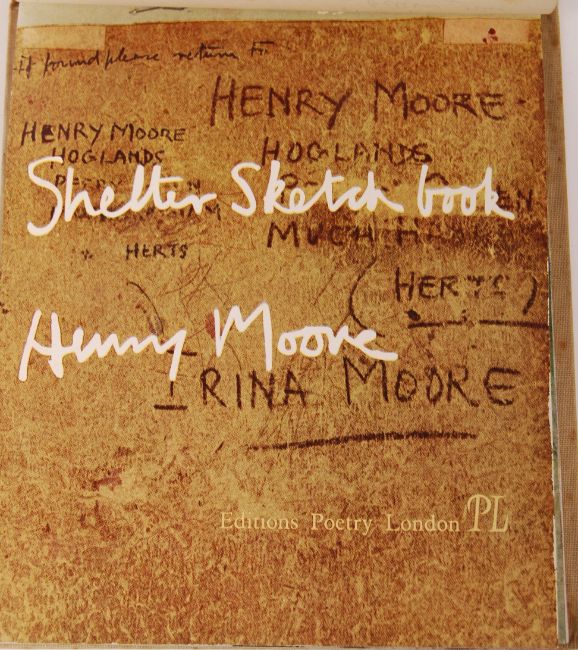 if found please return to
HENRY MOORE
HENRY MOORE
HOGLANDS
HOGLANDS
Shelter Sketch book
MUCH
HERTS
(HERTS)
Henry Moore
IRINA MOORE
Editions Poetry London PL